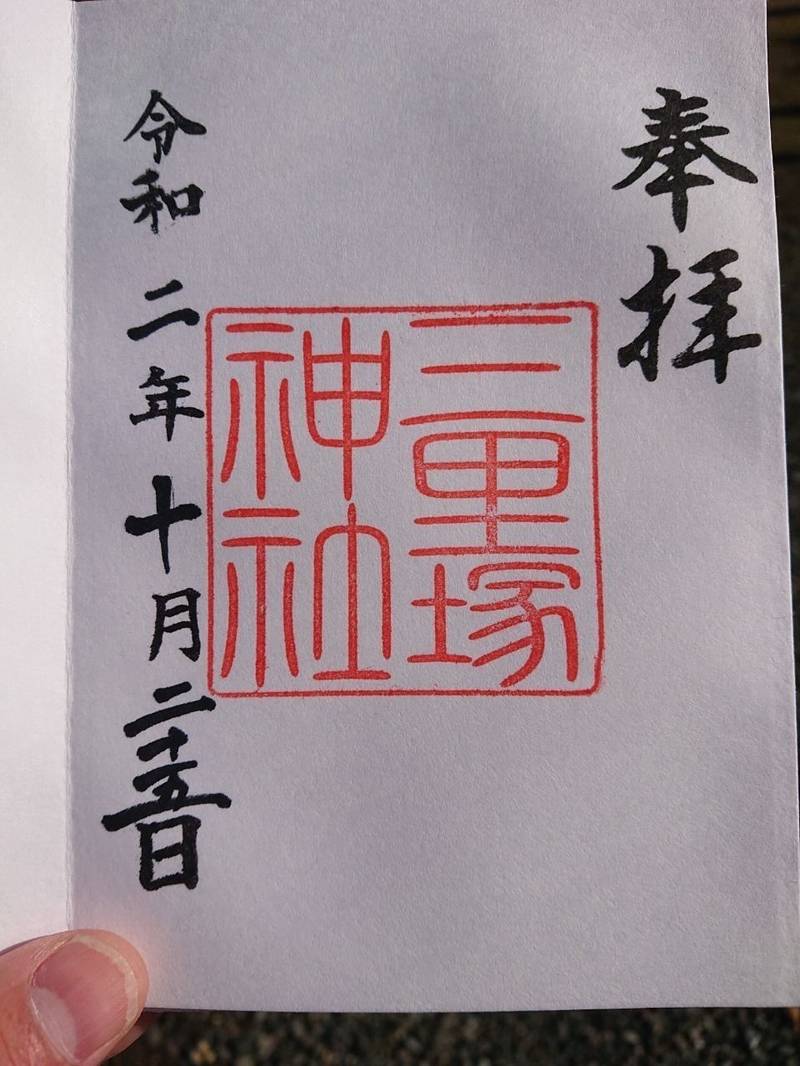 奉拝
三里塚
神社
令和二年十月二十五日